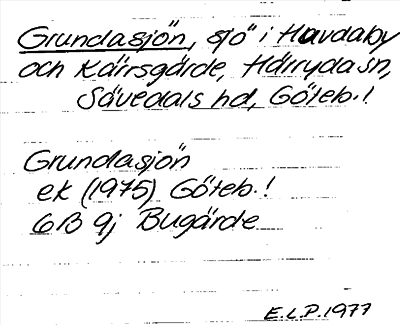 Grundasjön, sjö i Huvdaby
och Kärrsgärde, Härryda sn,
Sävedals hd, Göteb.!
Grundasjön
ek (1975) Göteb.!
6B 9j Bugärde
E.L.P. 1977